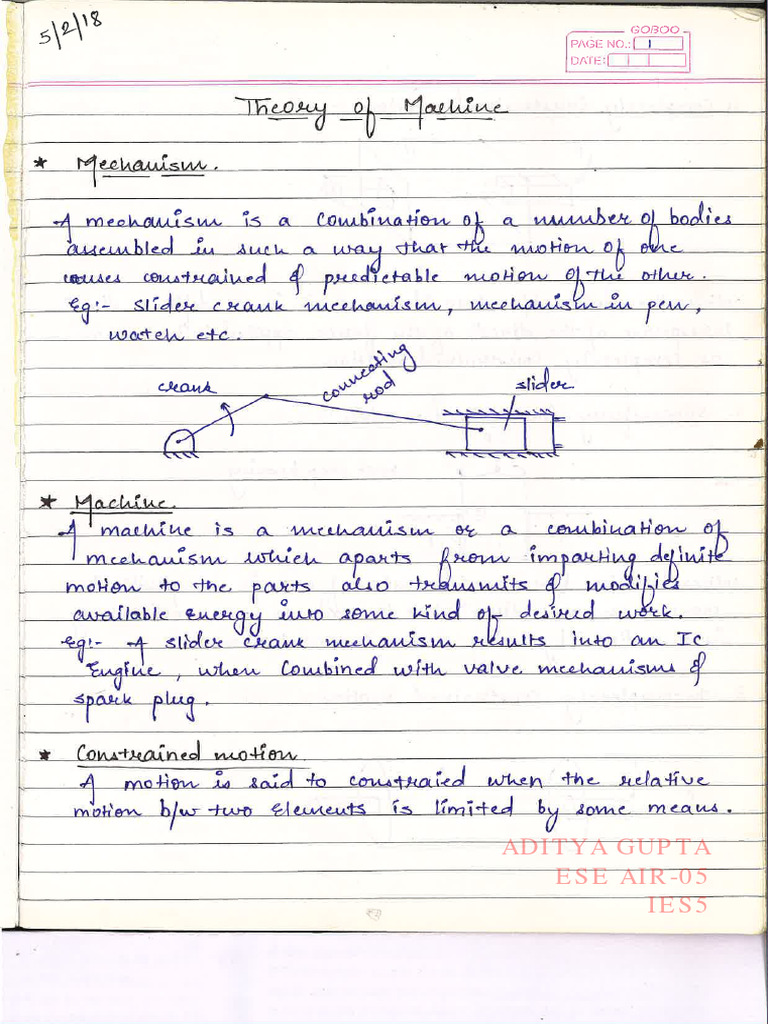 5/2/18
GOBOO
PAGE NO.: 1
DATE:
Theory of Machine
* Mechanism.
A mechanism is a combination of a number of bodies
assembled in such a way that the motion of one
causes constrained & predictable motion of the other.
Eg:- slider crank mechanism, mechanism in pen,
watch etc.
crank
connecting
rod
slider
* Machine.
A machine is a mechanism or a combination of
mechanism which aparts from imparting definite
motion to the parts also transmits & modifies
available energy into some kind of desired work.
Eg:- A slider crank mechanism results into an IC
Engine, when combined with valve mechanisms &
spark plug.
* Constrained motion
A motion is said to constraied when the relative
motion b/w two elements is limited by some means.
ADITYA GUPTA
ESE AIR-05
IES5